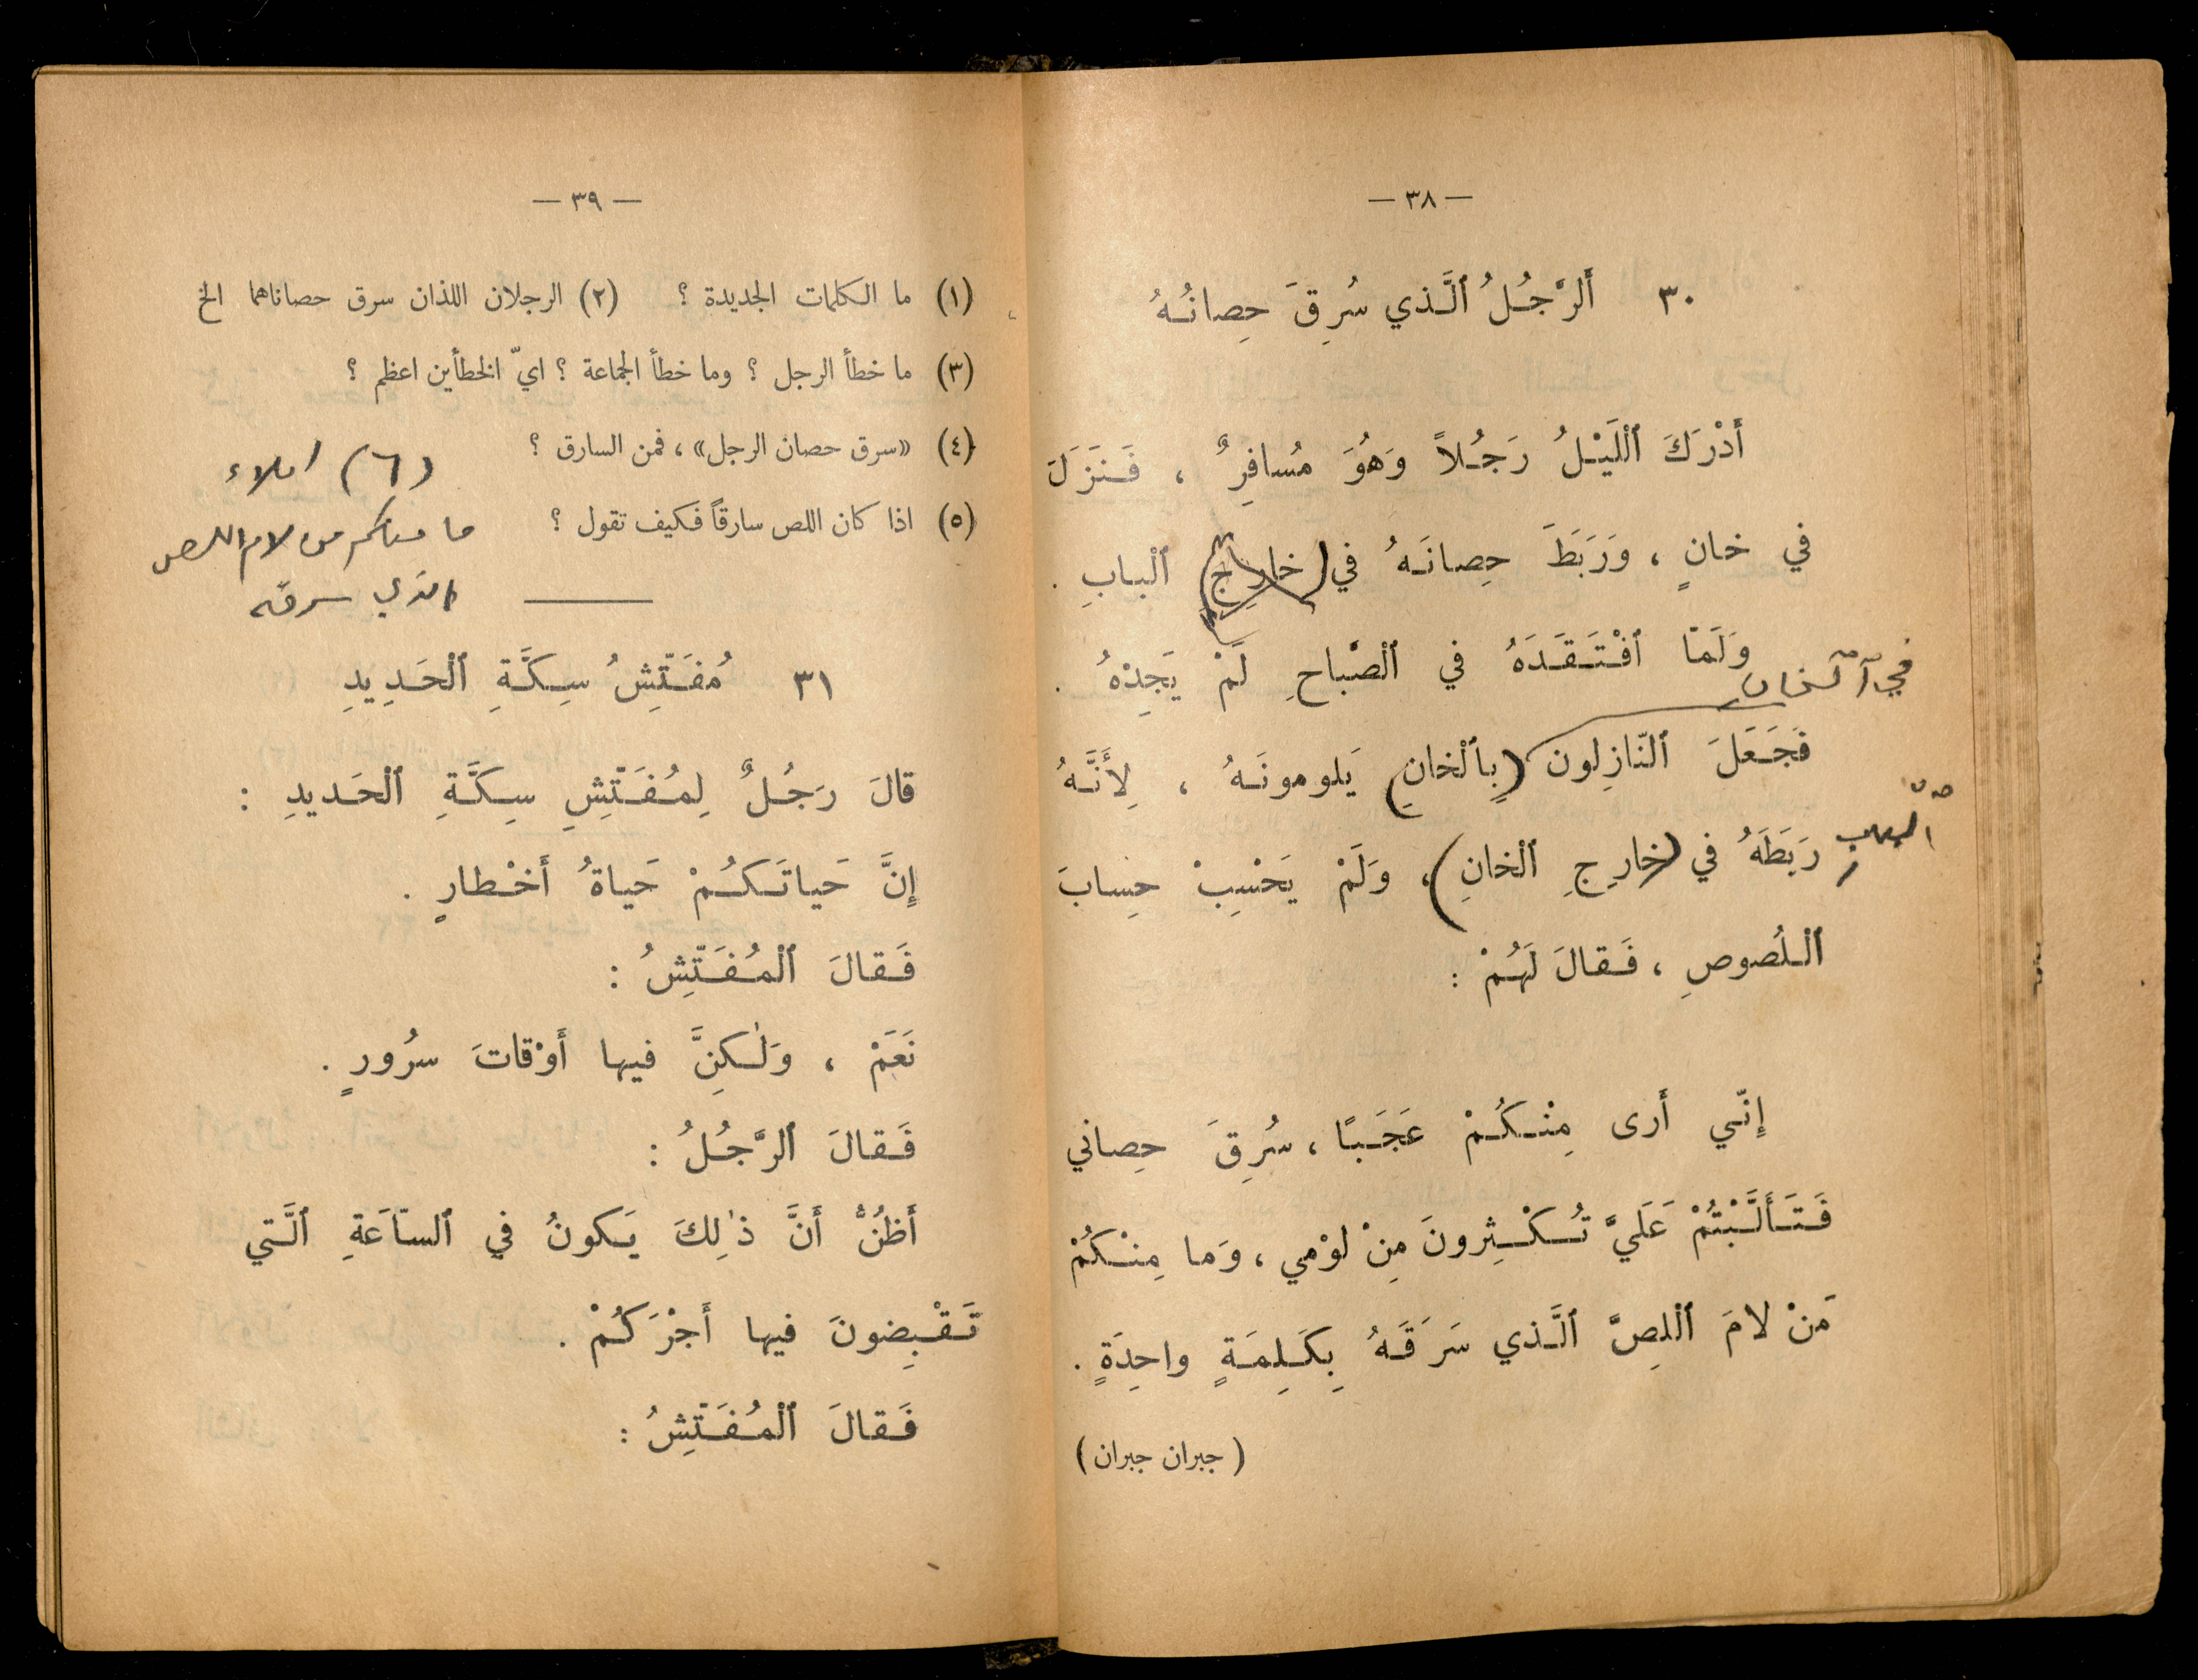 — ٣٨ —
٣٠ أَلرَّجُلُ ٱلَّذي سُرِقَ حِصانُهُ
أَدْرَكَ ٱللَّيْلُ رَجُلاً وَهُوَ مُسافِرٌ ، فَنَزَلَ
في خانٍ ، وَرَبَطَ حِصانَهُ في (خارِجِ) ٱلْبابِ .
وَلَمّا ٱفْتَقَدَهُ في ٱلصَّباحِ لَمْ يَجِدْهُ .
في ٱلخان
فَجَعَلَ ٱلنّازِلون (بِٱلْخانِ) يَلومونَهُ ، لِأَنَّهُ
رَبَطَهُ في (خارِجِ ٱلْخانِ) ، وَلَمْ يَحْسِبْ حِسابَ
ٱللُصوصِ ، فَقالَ لَهُمْ :
إِنّي أَرى مِنْكُمْ عَجَبًا ، سُرِقَ حِصاني
فَتَأَلَّبْتُمْ عَلَيَّ تُكْثِرونَ مِنْ لوْمي ، وَما مِنْكُمْ
مَنْ لامَ ٱللِصَّ ٱلَّذي سَرَقَهُ بِكَلِمَةٍ واحِدَةٍ .
( جبران جبران )
— ٣٩ —
(١) ما الكلمات الجديدة ؟ (٢) الرجلان اللذان سرق حصاناهما الخ
(٣) ما خطأ الرجل ؟ وما خطأ الجماعة ؟ ايّ الخطأين اعظم ؟
(٤) «سرق حصان الرجل» ، فمن السارق ؟
(٥) اذا كان اللص سارقاً فكيف تقول ؟
(٦) املاء
ما منكم من لام اللص
الذي سرقه
٣١ مُفَتِّشُ سِكَّةِ ٱلْحَدِيدِ
قالَ رَجُلٌ لِمُفَتِّشِ سِكَّةِ ٱلْحَديدِ :
إِنَّ حَياتَكُمْ حَياةُ أَخْطارٍ .
فَقالَ ٱلْمُفَتِّشُ :
نَعَمْ ، وَلٰكِنَّ فيها أَوْقاتَ سرُورٍ .
فَقالَ ٱلرَّجُلُ :
أَظُنُّ أَنَّ ذٰلِكَ يَكونُ في ٱلسّاعَةِ ٱلَّتي
تَقْبِضونَ فيها أَجْرَكُمْ .
فَقالَ ٱلْمُفَتِّشُ :